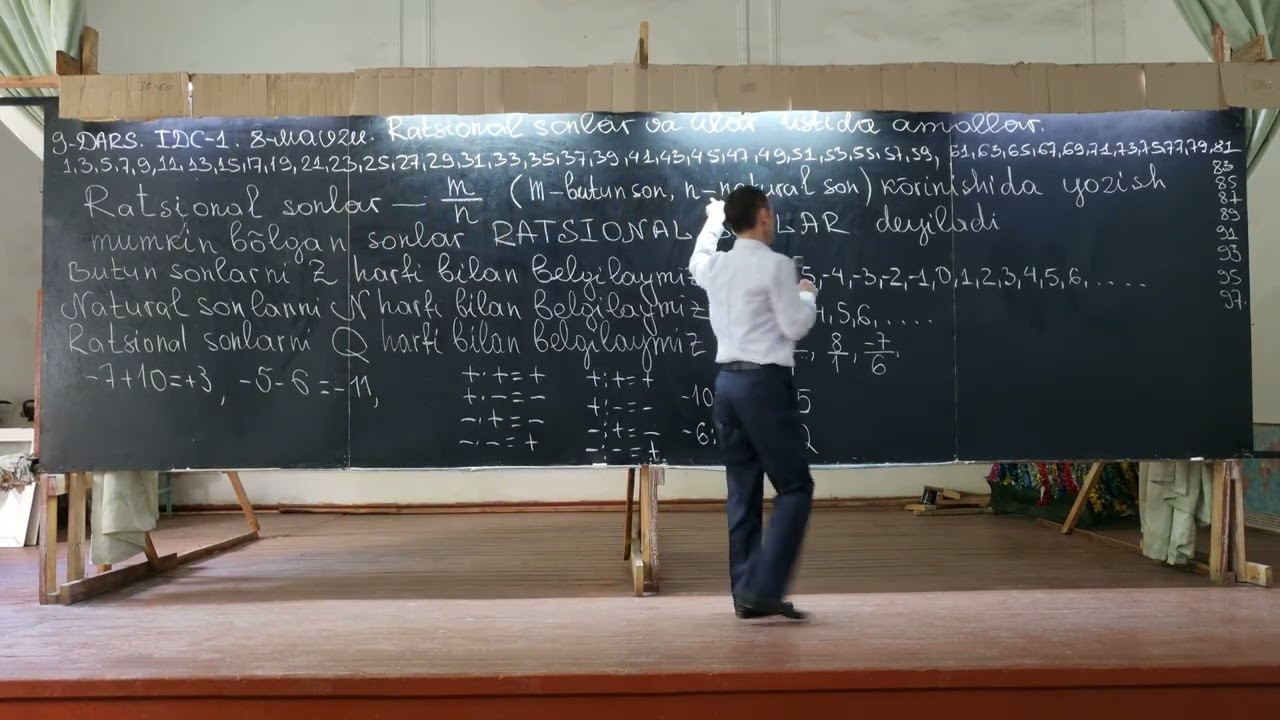 9-DARS. IDC-1. 8-mavzu. Ratsional sonlar va ular ustida amallar.
1,3,5,7,9,11,13,15,17,19,21,23,25,27,29,31,33,35,37,39,41,43,45,47,49,51,53,55,57,59,61,63,65,67,69,71,73,75,77,79,81
83
85
87
89
91
93
95
97.
Ratsional sonlar — m/n (m-butun son, n-natural son) kõrinishida yozish
mumkin bõlgan sonlar RATSIONAL LAR deyiladi
Butun sonlarni Z harfi bilan belgilaymiz 5,-4,-3,-2,-1,0,1,2,3,4,5,6,.....
Natural sonlarni N harfi bilan belgilaymiz 4,5,6,.....
Ratsional sonlarni Q harfi bilan belgilaymiz , 8/1, -7/6,
-7+10=+3, -5-6=-11,
+·+=+ +:+=+
+·-=- +:-=- -10 5
-·+=- -:+=- -6:
-·-=+ -:-=+